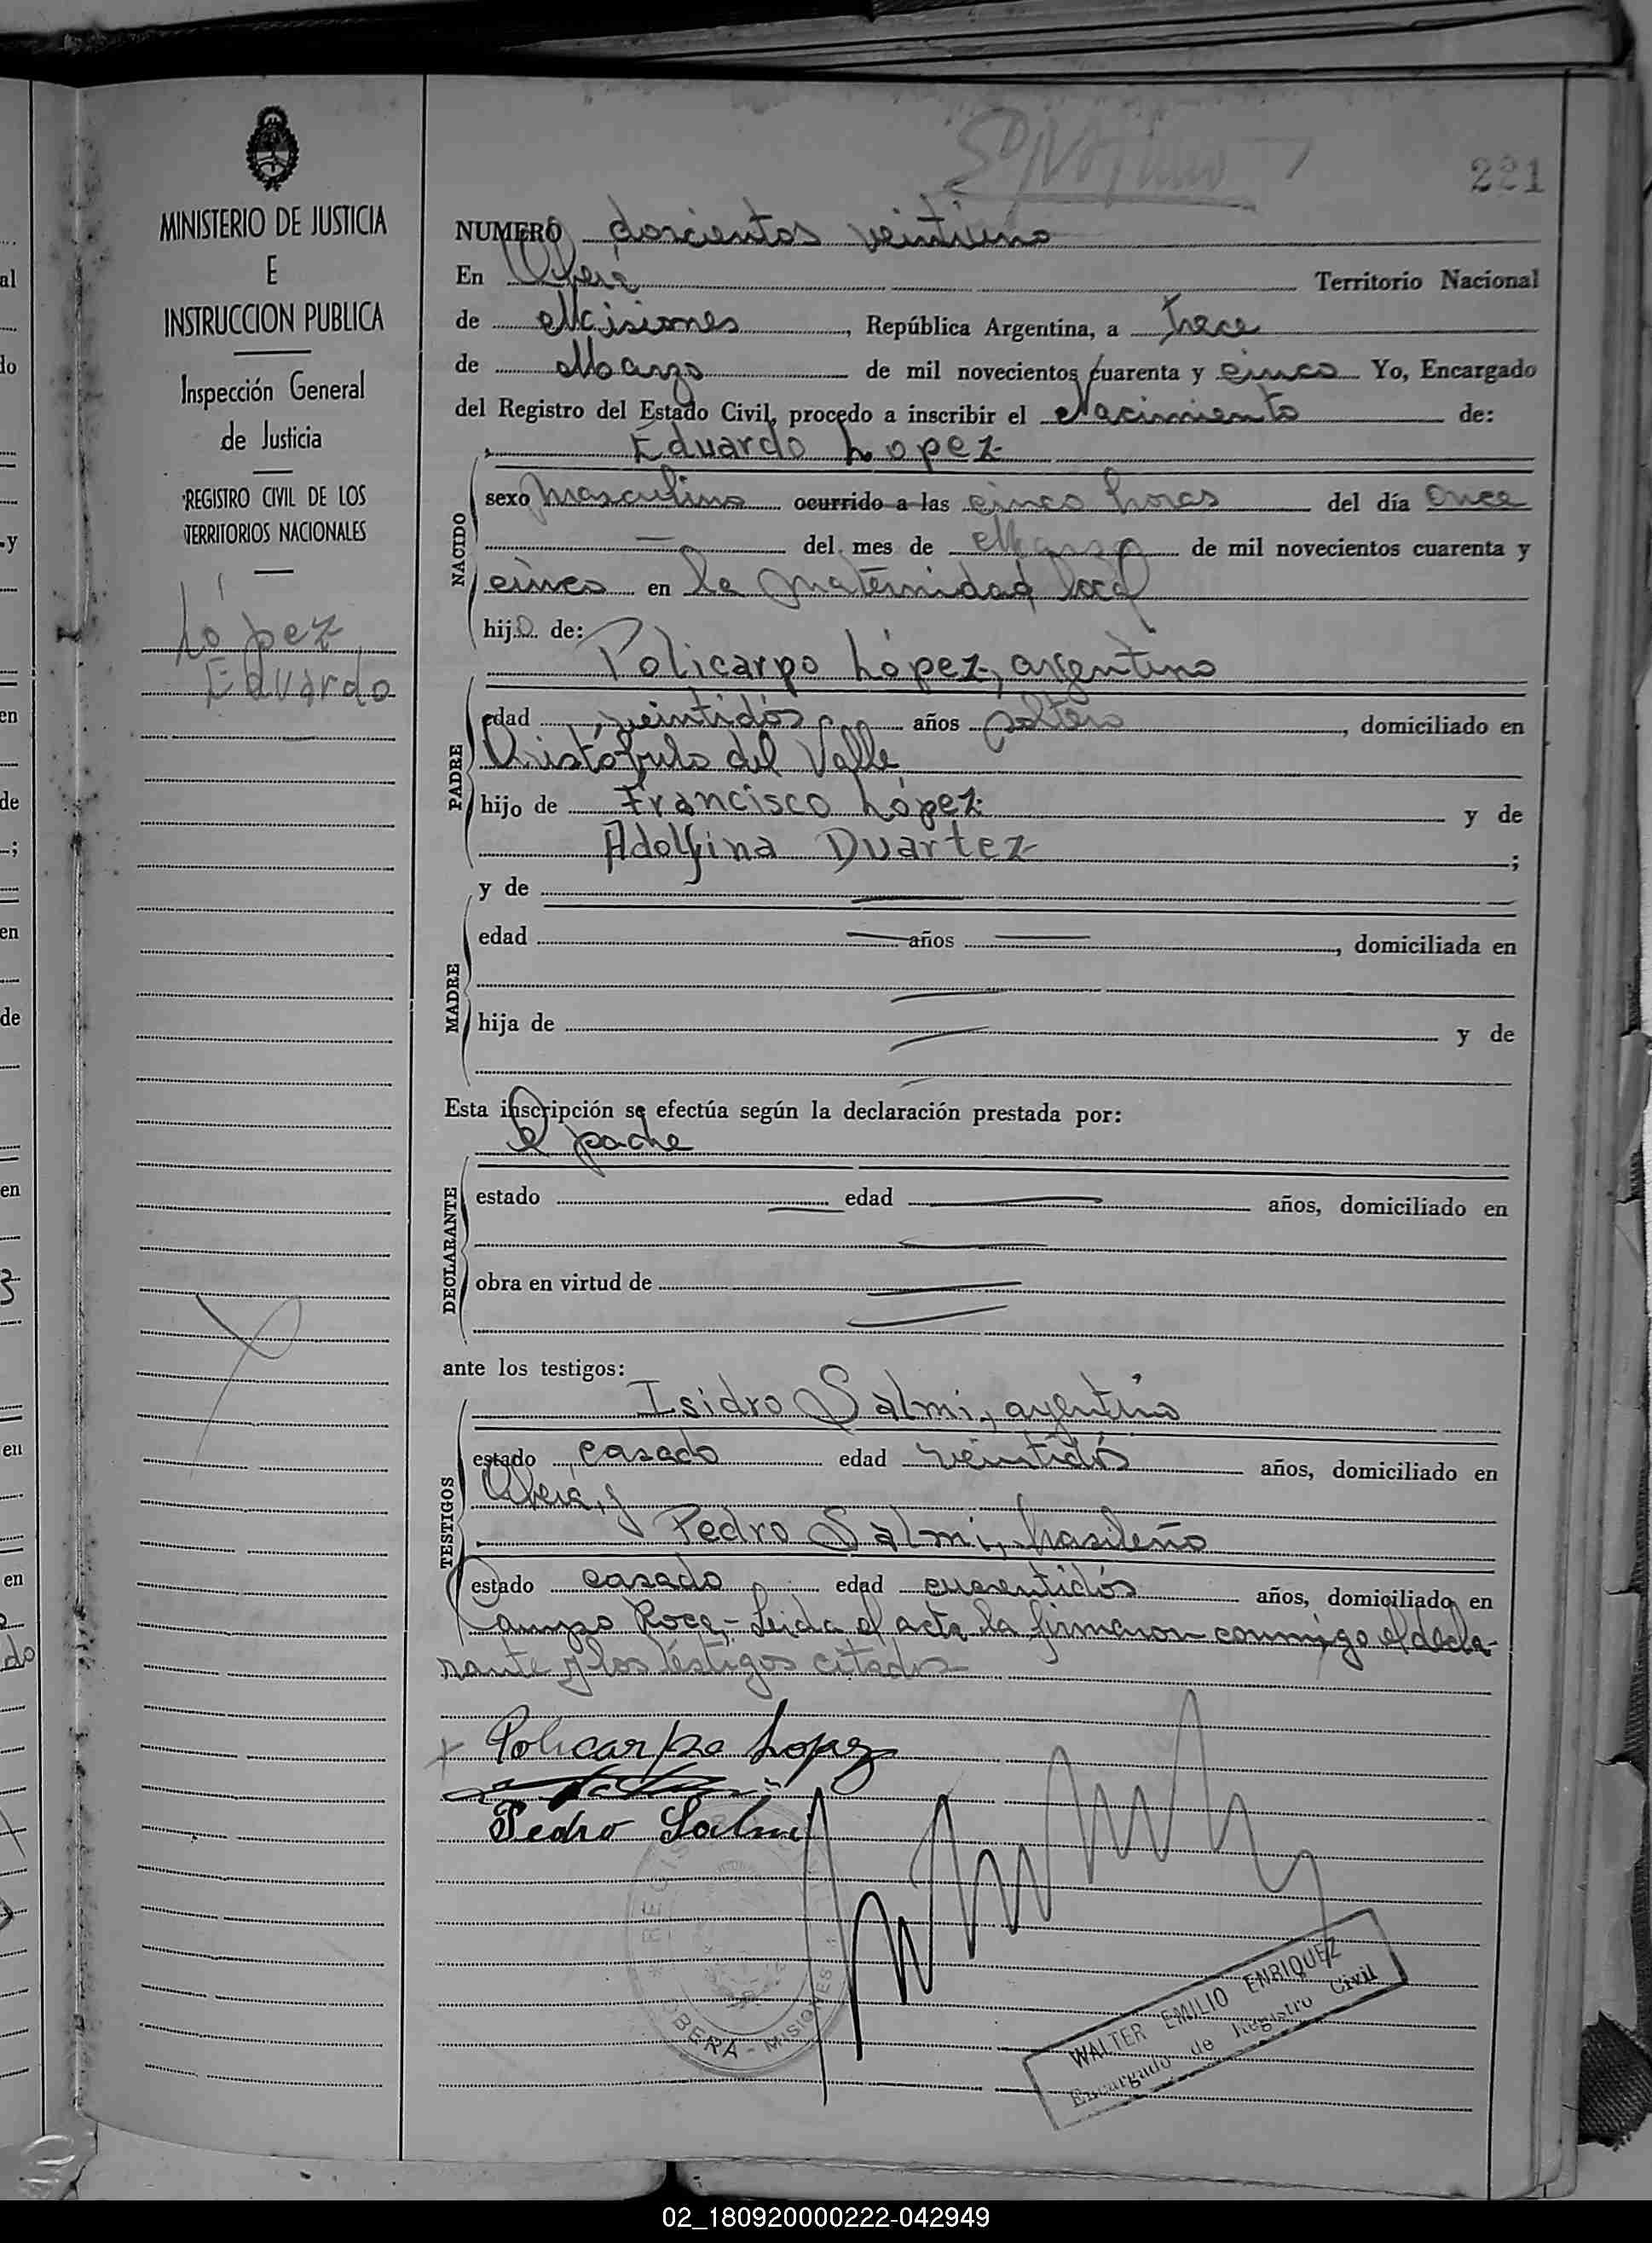 221
MINISTERIO DE JUSTICIA
E
INSTRUCCION PUBLICA
Inspección General
de Justicia
REGISTRO CIVIL DE LOS
TERRITORIOS NACIONALES
López
Eduardo
NUMERO doscientos veintiuno
En Oberá Territorio Nacional
de Misiones, República Argentina, a trece
de Marzo de mil novecientos cuarenta y cinco Yo, Encargado
del Registro del Estado Civil, procedo a inscribir el Nacimiento de:
Eduardo Lopez
NACIDO
sexo masculino ocurrido a las cinco horas del día once
— del mes de Marzo de mil novecientos cuarenta y
cinco en la maternidad local
hijo de:
Policarpo López, argentino
PADRE
edad veintidós años soltero, domiciliado en
Aristóbulo del Valle
hijo de Francisco López y de
Adolfina Duartez ;
y de —
MADRE
edad — años —, domiciliada en
hija de — y de
Esta inscripción se efectúa según la declaración prestada por:
el padre
DECLARANTE
estado — edad — años, domiciliado en
obra en virtud de —
ante los testigos:
TESTIGOS
Isidro Salmi, argentino
estado casado edad veintidós años, domiciliado en
Oberá, y
Pedro Salmi, brasileño
estado casado edad cuarentidós años, domiciliado en
Campo Roca,- Leida el acta la firmaron conmigo el decla-
rante y los testigos citados
Policarpo Lopez
Pedro Salmi
REGISTRO CIVIL
OBERA - MISIONES
WALTER EMILIO ENRIQUEZ
Encargado de Registro Civil
02_180920000222-042949